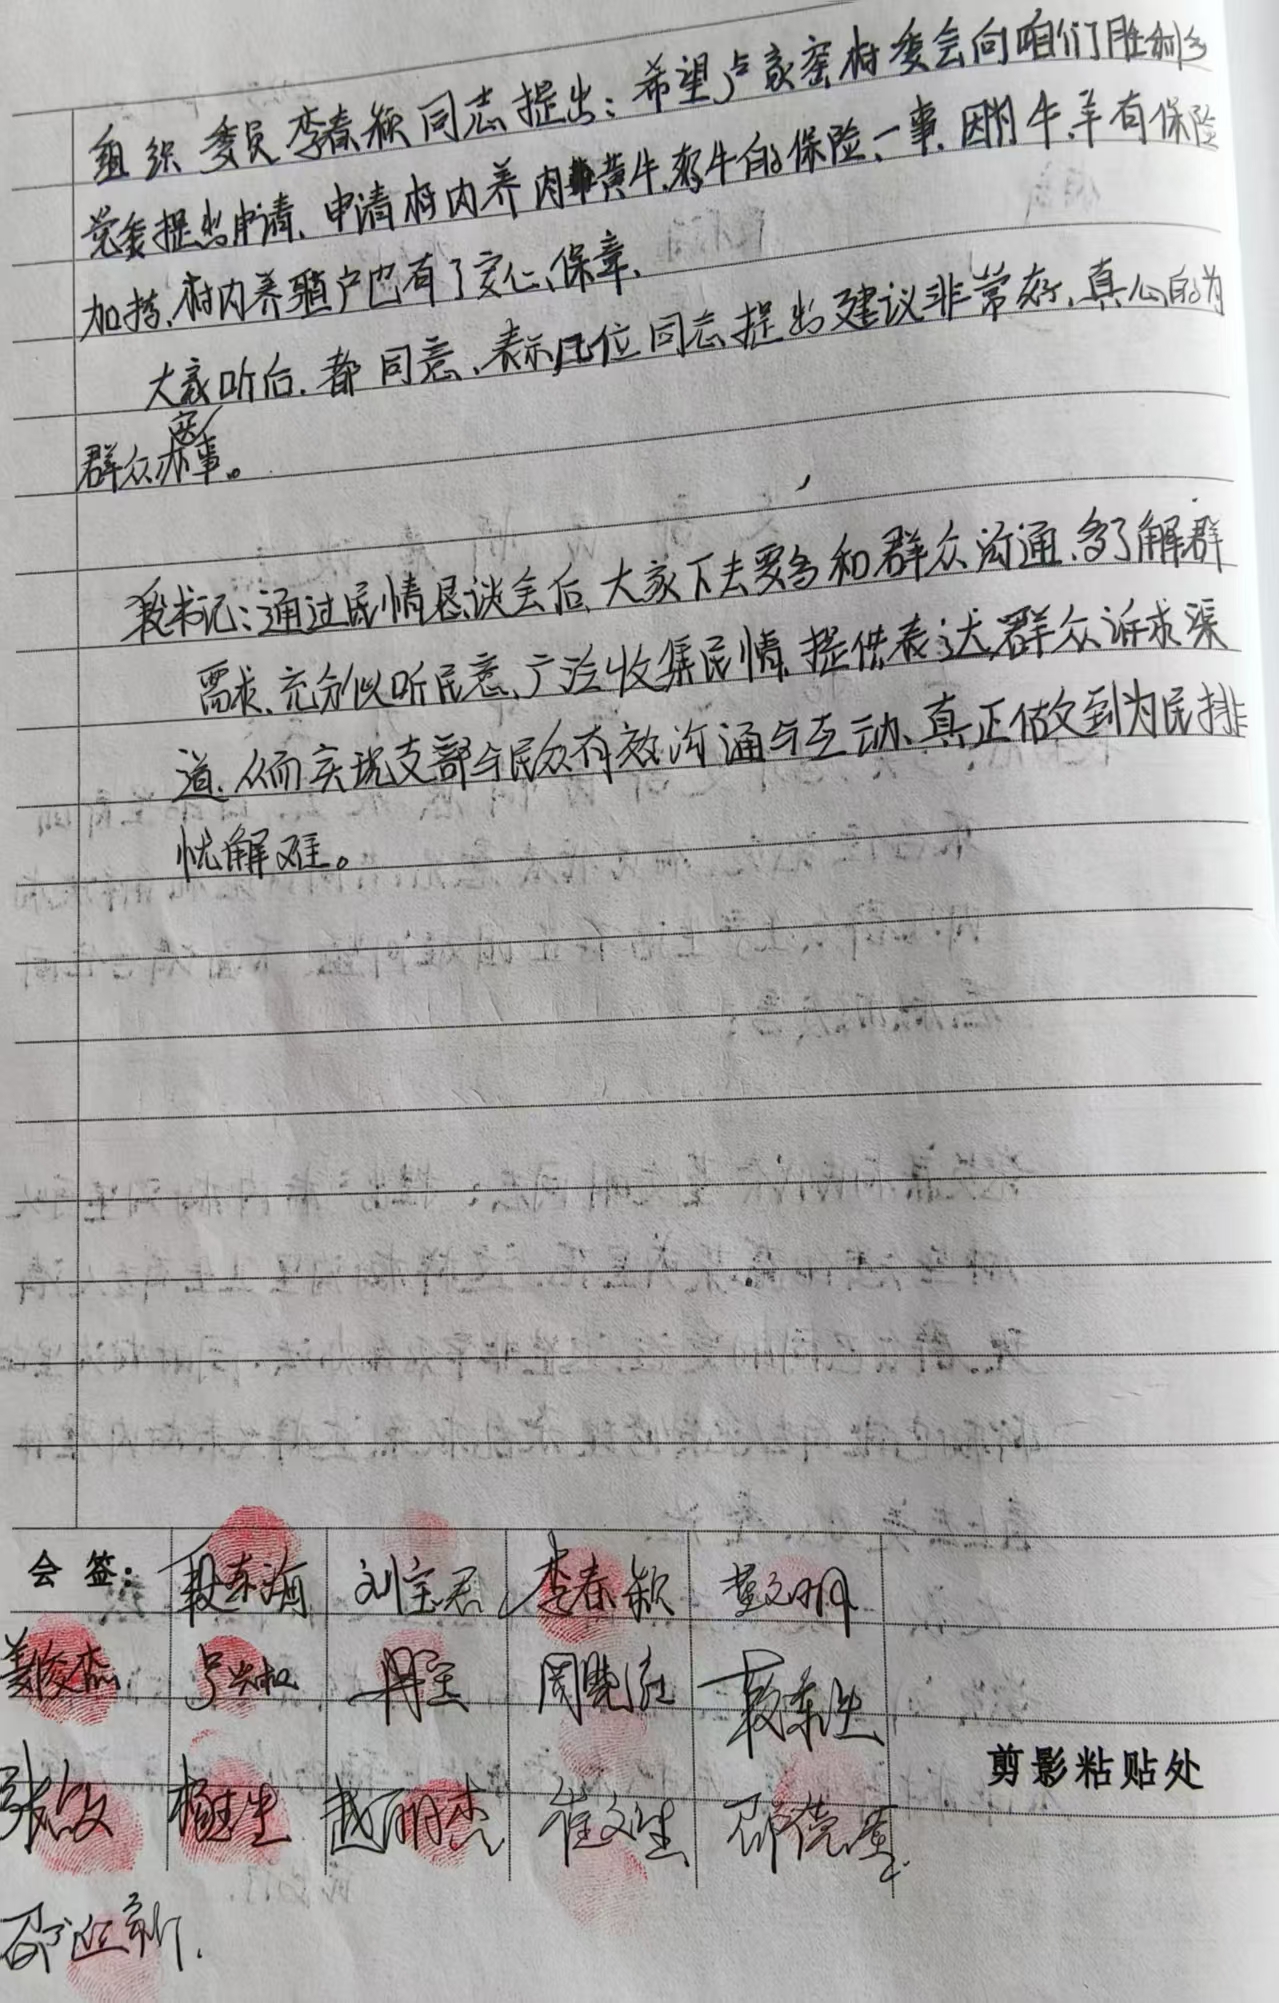 组织委员李春颖同志提出：希望卢家窑村委会向咱们胜利乡
党委提出申请、申请村内养肉黄牛、奶牛的保险、一事、因为牛、羊有保险
加持、村内养殖户也有了安心、保章、
大家听后、都同意、表示几位同志提出建议非常好、真心的为
群众办实事。
段书记：通过民情恳谈会后、大家下去要多和群众沟通、多了解群
需求、充分似听民意、广泛收集民情、提供表达群众诉求渠
道、从而实现支部与民众有效沟通与互动、真正做到为民排
忧解难。
会签： 段东海 刘宝君 李春颖 董文明
姜俊杰 周晓红
剪影粘贴处
张 杨 生 赵丽杰 崔文生 邵德
邵迎新.